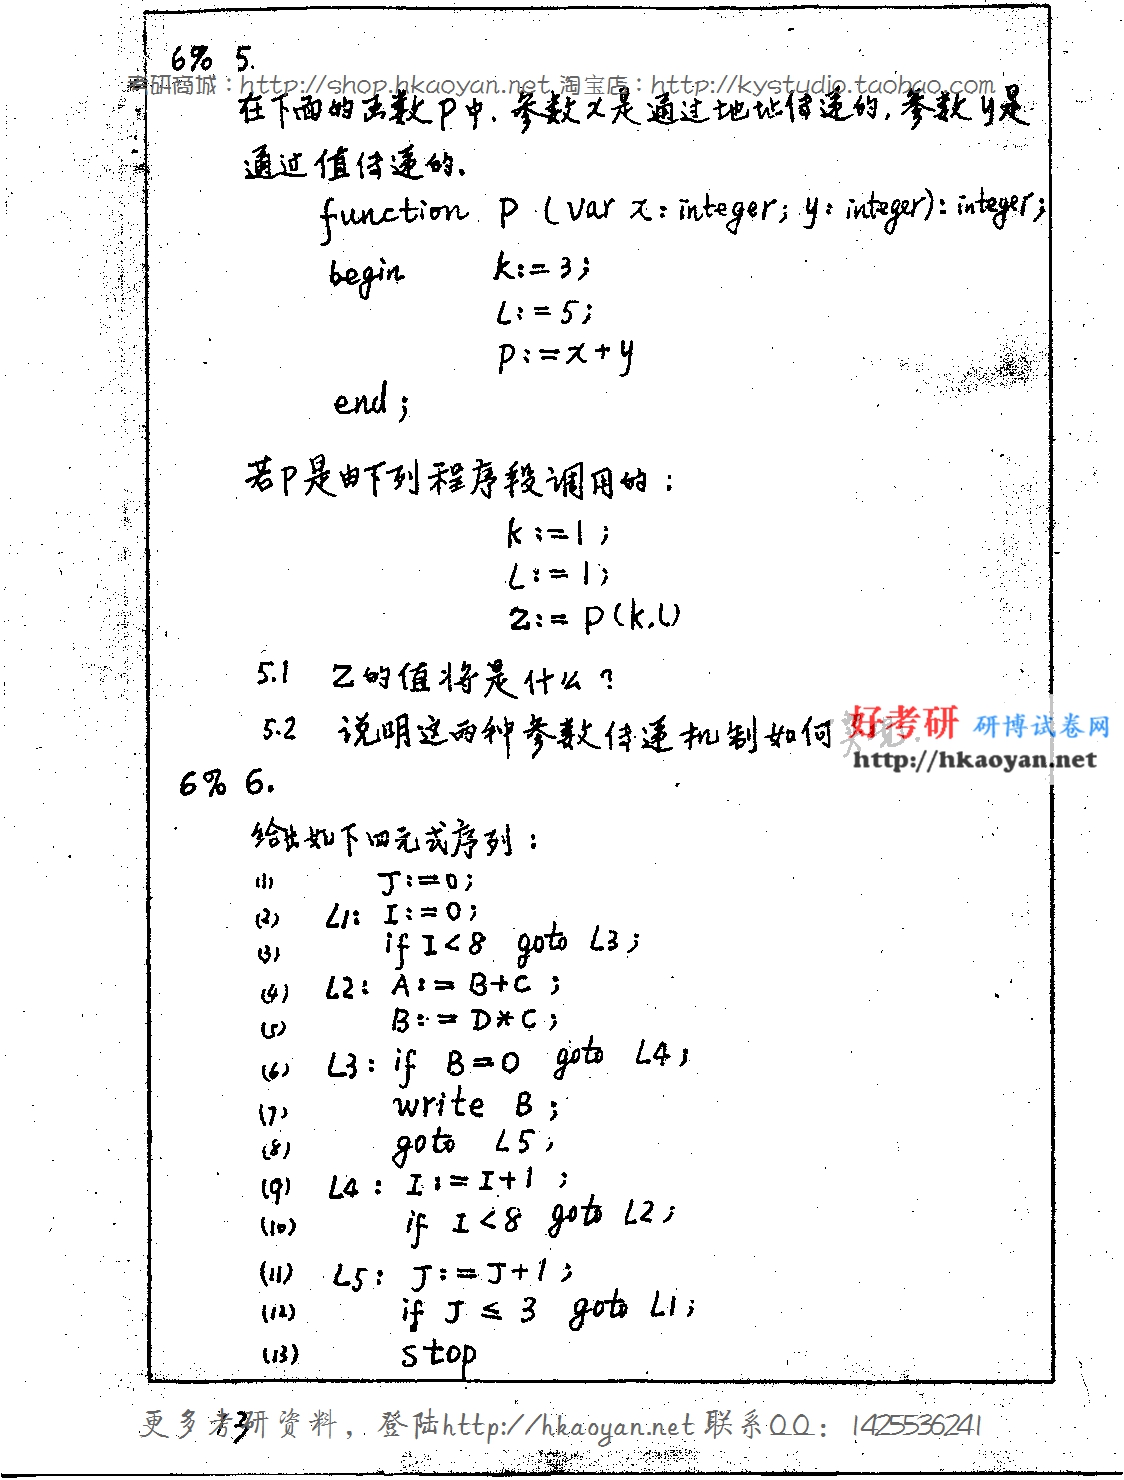 6% 5.
考研商城：http://shop.hkaoyan.net 淘宝店：http://kystudio.taobao.com
在下面的函数P中，参数x是通过地址传递的，参数y是
通过值传递的.
function P (var x: integer; y: integer): integer;
begin k:=3;
L:=5;
P:=x+y
end;
若P是由下列程序段调用的：
k:=1;
L:=1;
Z:= P(k,L)
5.1 Z的值将是什么?
5.2 说明这两种参数传递机制如何
好考研 研博试卷网
http://hkaoyan.net
6% 6.
给出如下四元式序列：
(1) J:=0;
(2) L1: I:=0;
(3) if I<8 goto L3;
(4) L2: A:=B+C;
(5) B:=D*C;
(6) L3: if B=0 goto L4;
(7) write B;
(8) goto L5;
(9) L4: I:=I+1;
(10) if I<8 goto L2;
(11) L5: J:=J+1;
(12) if J≤3 goto L1;
(13) stop
3
更多考研资料，登陆http://hkaoyan.net 联系QQ：1425536241